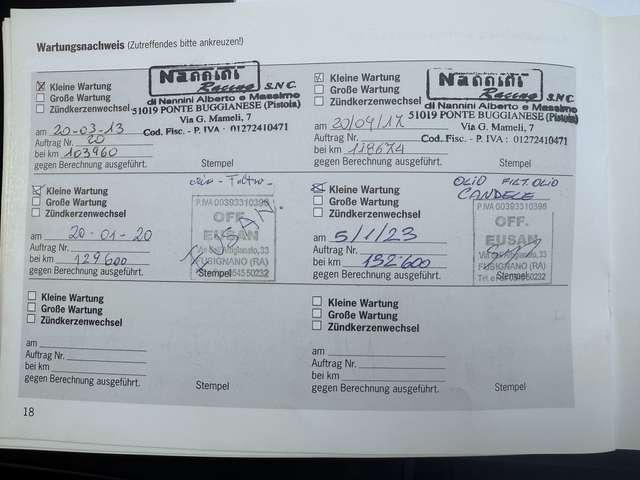 Wartungsnachweis (Zutreffendes bitte ankreuzen!)
Kleine Wartung
Große Wartung
Zündkerzenwechsel
Nannini
Racing S.N.C.
di Nannini Alberto e Massimo
51019 PONTE BUGGIANESE (Pistoia)
Via G. Mameli, 7
Cod. Fisc. - P. IVA : 01272410471
am 20-03-13
Auftrag Nr. 20
bei km 103960
gegen Berechnung ausgeführt.
Stempel
Kleine Wartung
Große Wartung
Zündkerzenwechsel
Nannini
Racing S.N.C.
di Nannini Alberto e Massimo
51019 PONTE BUGGIANESE (Pistoia)
Via G. Mameli, 7
Cod. Fisc. - P. IVA : 01272410471
am 20/04/17
Auftrag Nr.
bei km 118674
gegen Berechnung ausgeführt.
Stempel
Kleine Wartung
Große Wartung
Zündkerzenwechsel
P.IVA 00393310398
OFF.
EUSAN
FUSIGNANO (RA)
am 20-01-20
Auftrag Nr.
bei km 129600
gegen Berechnung ausgeführt.
Stempel
Kleine Wartung
Große Wartung
Zündkerzenwechsel
OLIO FILT. OLIO
CANDELE
P.IVA 00393310398
OFF.
EUSAN
FUSIGNANO (RA)
am 5/1/23
Auftrag Nr.
bei km 132600
gegen Berechnung ausgeführt.
Stempel
Kleine Wartung
Große Wartung
Zündkerzenwechsel
am
Auftrag Nr.
bei km
gegen Berechnung ausgeführt.
Stempel
Kleine Wartung
Große Wartung
Zündkerzenwechsel
am
Auftrag Nr.
bei km
gegen Berechnung ausgeführt.
Stempel
18